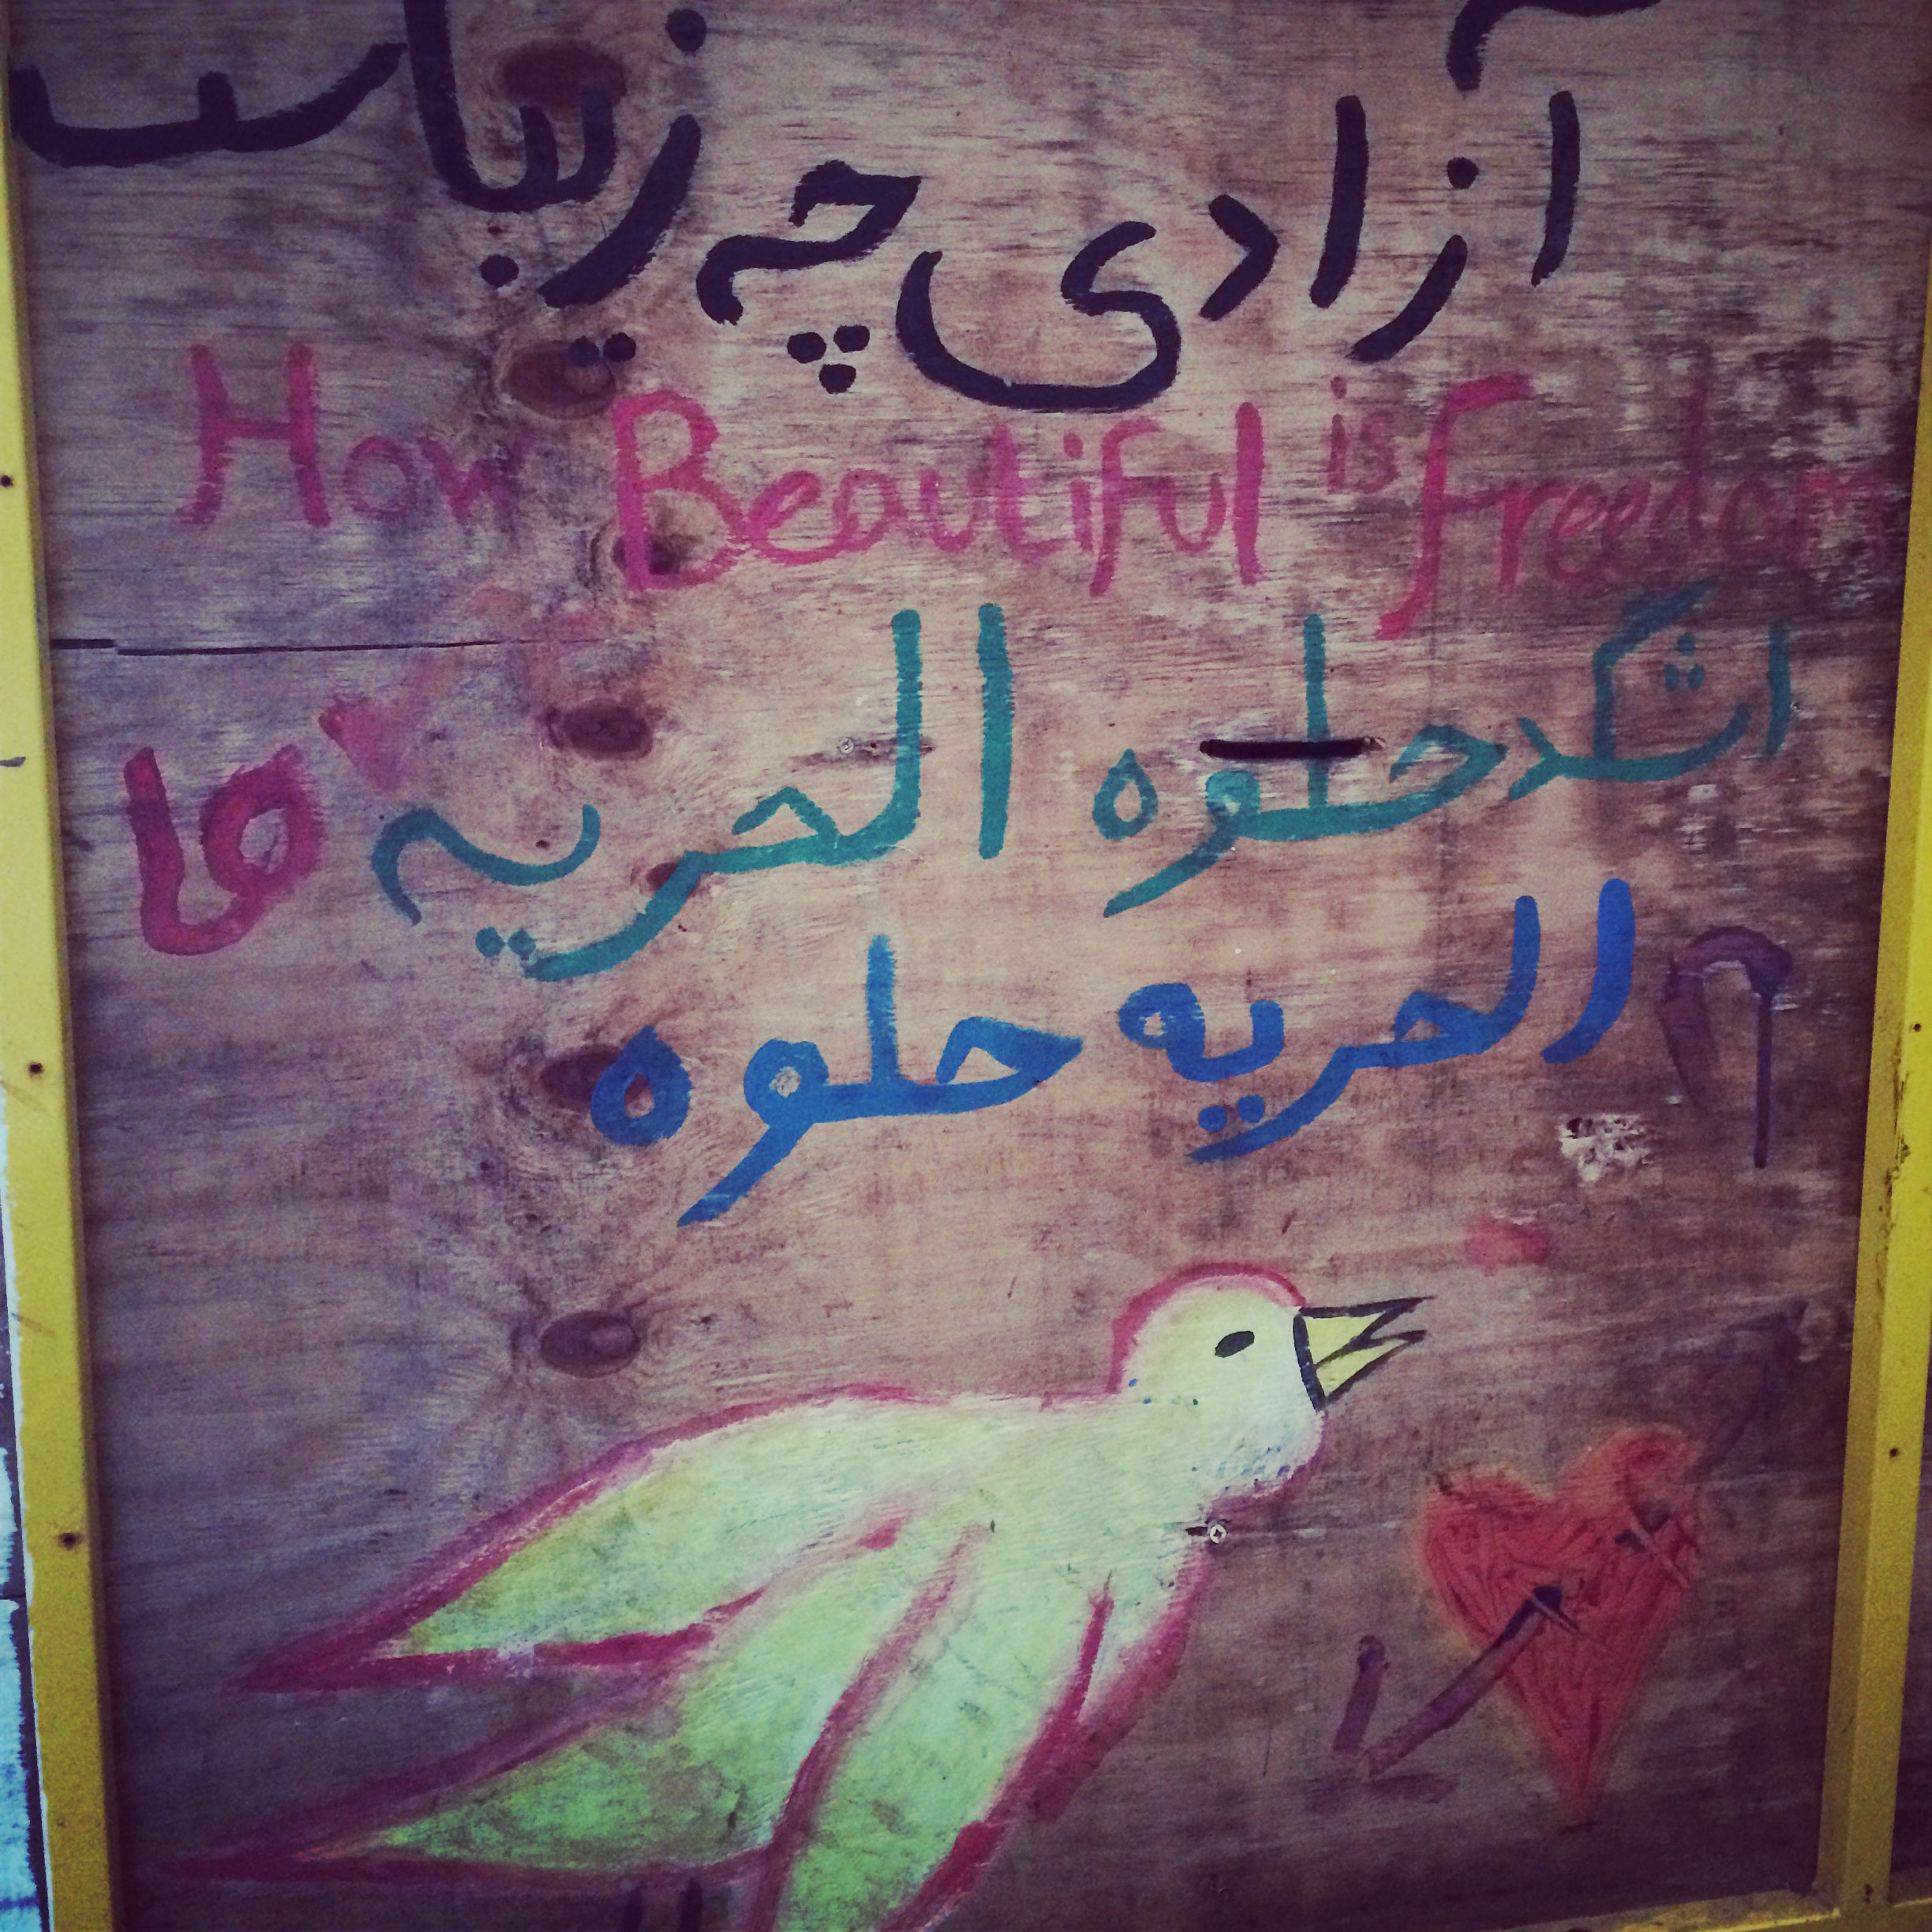 آزادی چه زیباست
How Beautiful is freedom
اشكد حلوه الحريه
الحريه حلوه